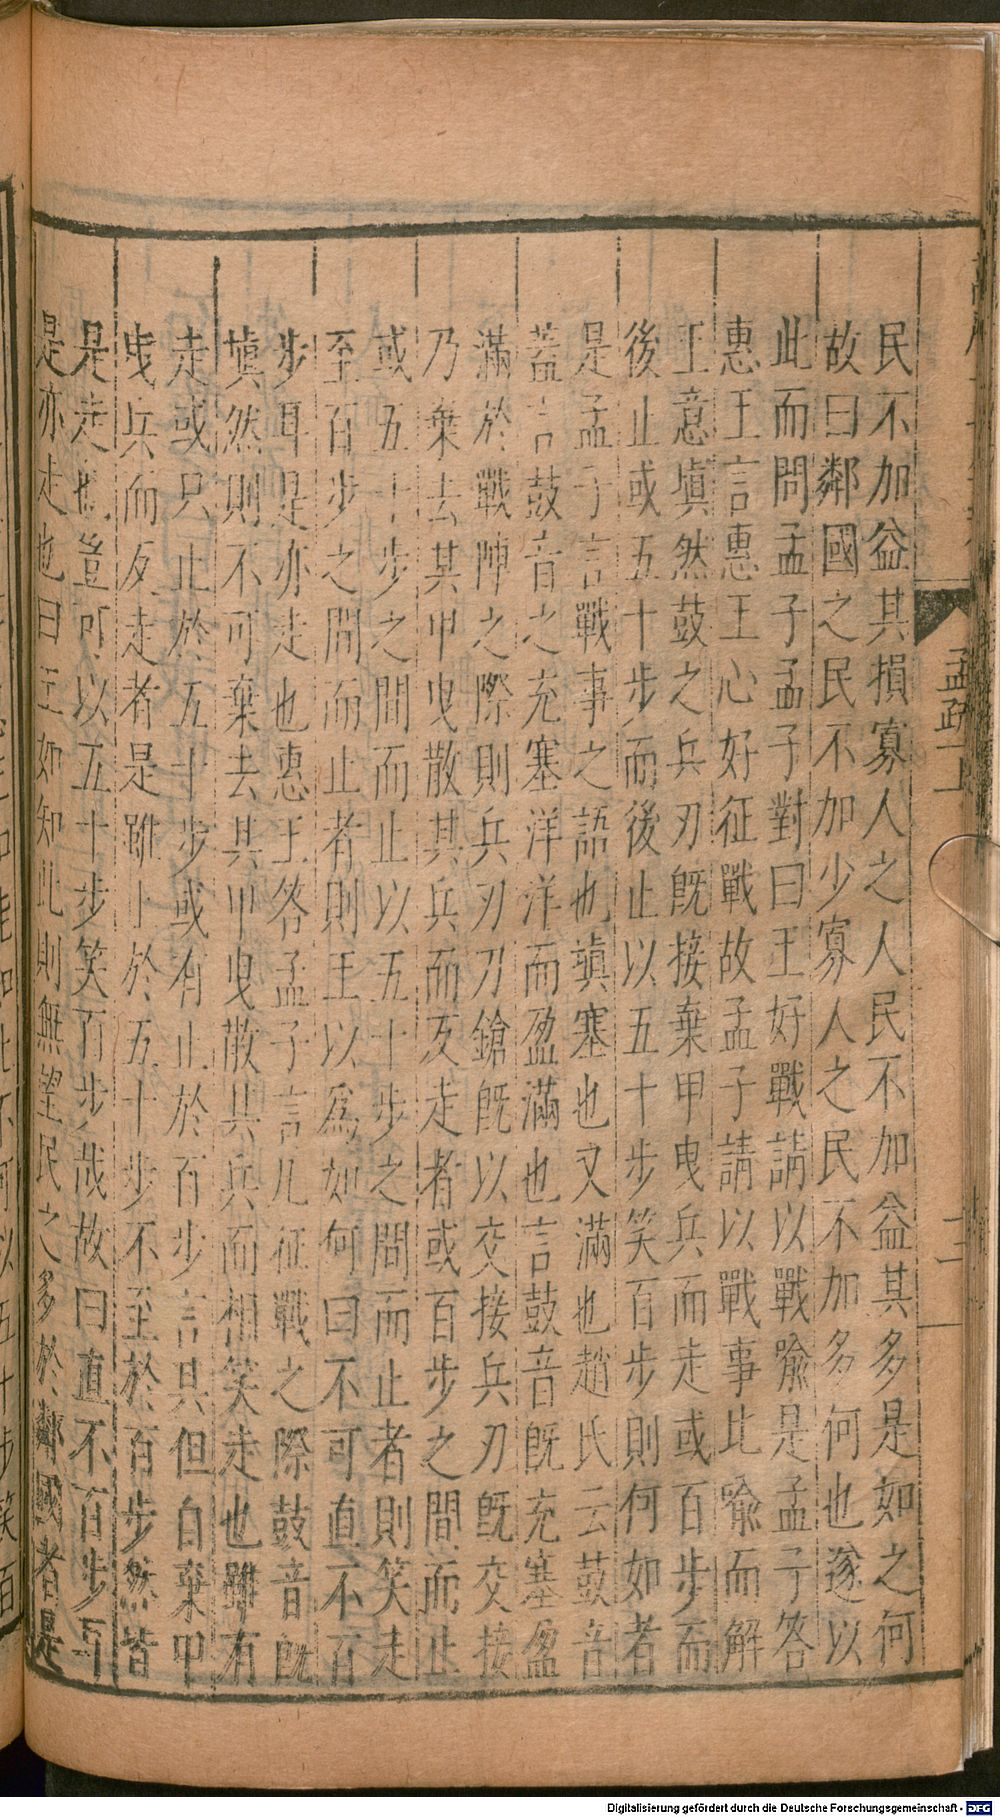 民不加益其損寡人之人民不加益其多是如之何
故曰鄰國之民不加少寡人之民不加多何也遂以
此而問孟子孟子對曰王好戰請以戰喻是孟子答
惠王言惠王心好征戰故孟子請以戰事比喻而解
王意塡然鼓之兵刃旣接棄甲曳兵而走或百步而
後止或五十步而後止以五十步笑百步則何如者
是孟子言戰事之語也塡塞也又滿也趙氏云鼓音
蓋言鼓音之充塞洋洋而盈滿也言鼓音旣充塞盈
滿於戰陣之際則兵刃刀鎗旣以交接兵刃旣交接
乃棄去其甲曳散其兵而反走者或百步之間而止
或五十步之間而止以五十步之間而止者則笑走
至百步之間而止者則王以爲如何曰不可直不百
步耳是亦走也惠王答孟子言凡征戰之際鼓音旣
塡然則不可棄去其甲曳散其兵而相笑走也雖有
走或只止於五十步或有止於百步言其但自棄甲
曳兵而反走者是雖止於五十步不至於百步然皆
是走也豈可以五十步笑百步哉故曰直不百步耳
是亦走也曰王如知此則無望民之多於鄰國者是
孟疏一上
二
Digitalisierung gefördert durch die Deutsche Forschungsgemeinschaft - DFG